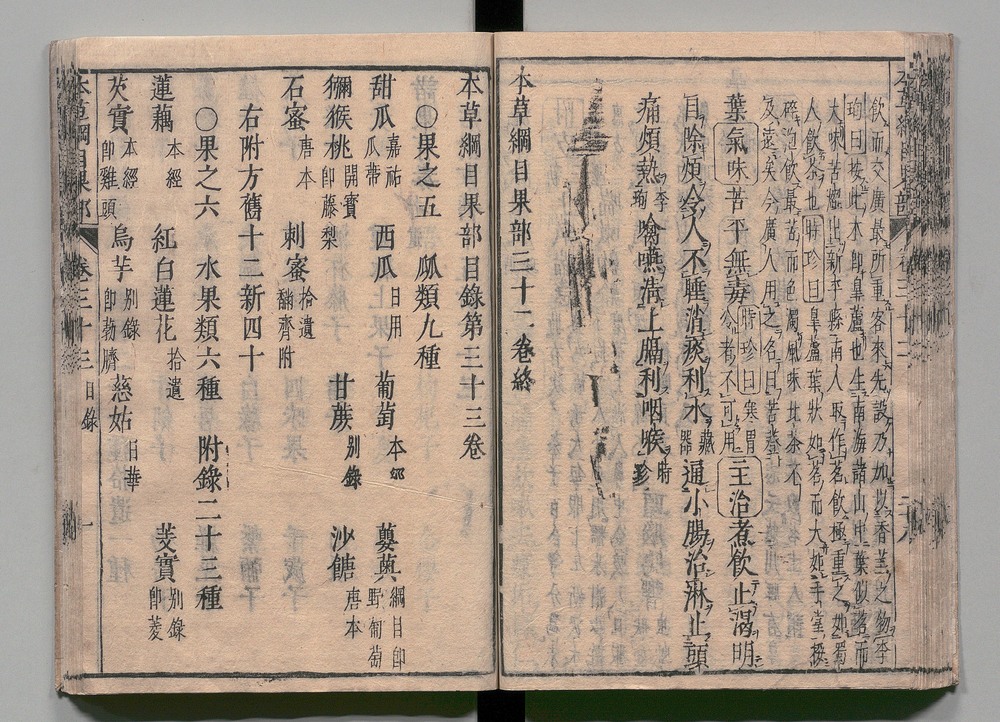 飲而交廣最所重客來先設乃加以香芼之物李
珣曰按此木即皐蘆也生南海諸山中葉似茗而
大味苦澀出新平縣南人取作茗飲極重之如蜀
人飲茶也時珍曰皐蘆葉狀如茗而大如手掌挼
碎泡飲最苦而色濁風味比茶不
及遠矣今廣人用之名曰苦䔲
葉氣味苦平無毒時珍曰寒胃冷者不可用主治煮飲止渴明
目除煩令人不睡消痰利水藏器通小腸治淋止頭
痛煩熱李珣噙嚥清上膈利咽喉時珍
本草綱目果部三十二卷終
本草綱目果部目錄第三十三卷
〇果之五 蓏類九種
甜瓜嘉祐瓜蒂 西瓜日用 葡萄本經 蘡薁綱目即野葡萄
獼猴桃開寶即藤梨 甘蔗別錄 沙餹唐本
石蜜唐本 刺蜜拾遺䤈齊附
右附方舊十二新四十
〇果之六 水果類六種 附錄二十三種
蓮藕本經 紅白蓮花拾遺 芰實別錄即菱
芡實本經即雞頭 烏芋別錄即勃臍 慈姑日華
本草綱目果部 卷三十三目錄 一